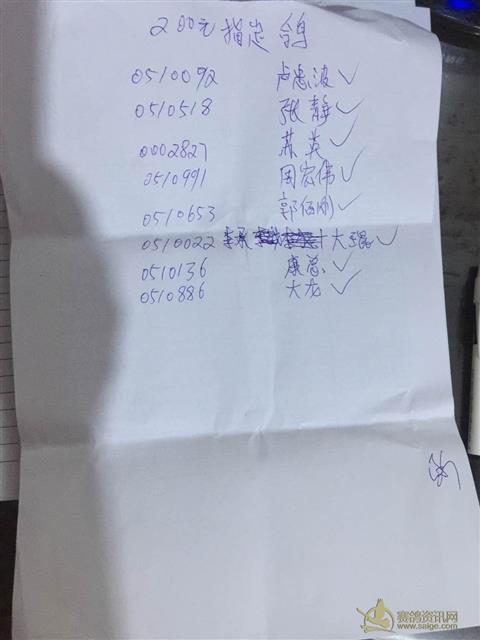 200元指定鸽
0510092 卢忠波 ✓
0510518 张静 ✓
0002827 苏英 ✓
0510991 周宏伟 ✓
0510653 郭伍刚 ✓
0510022 李承 十大强 ✓
0510136 康总 ✓
0510886 大龙 ✓
赛鸽资讯网
www.saige.com